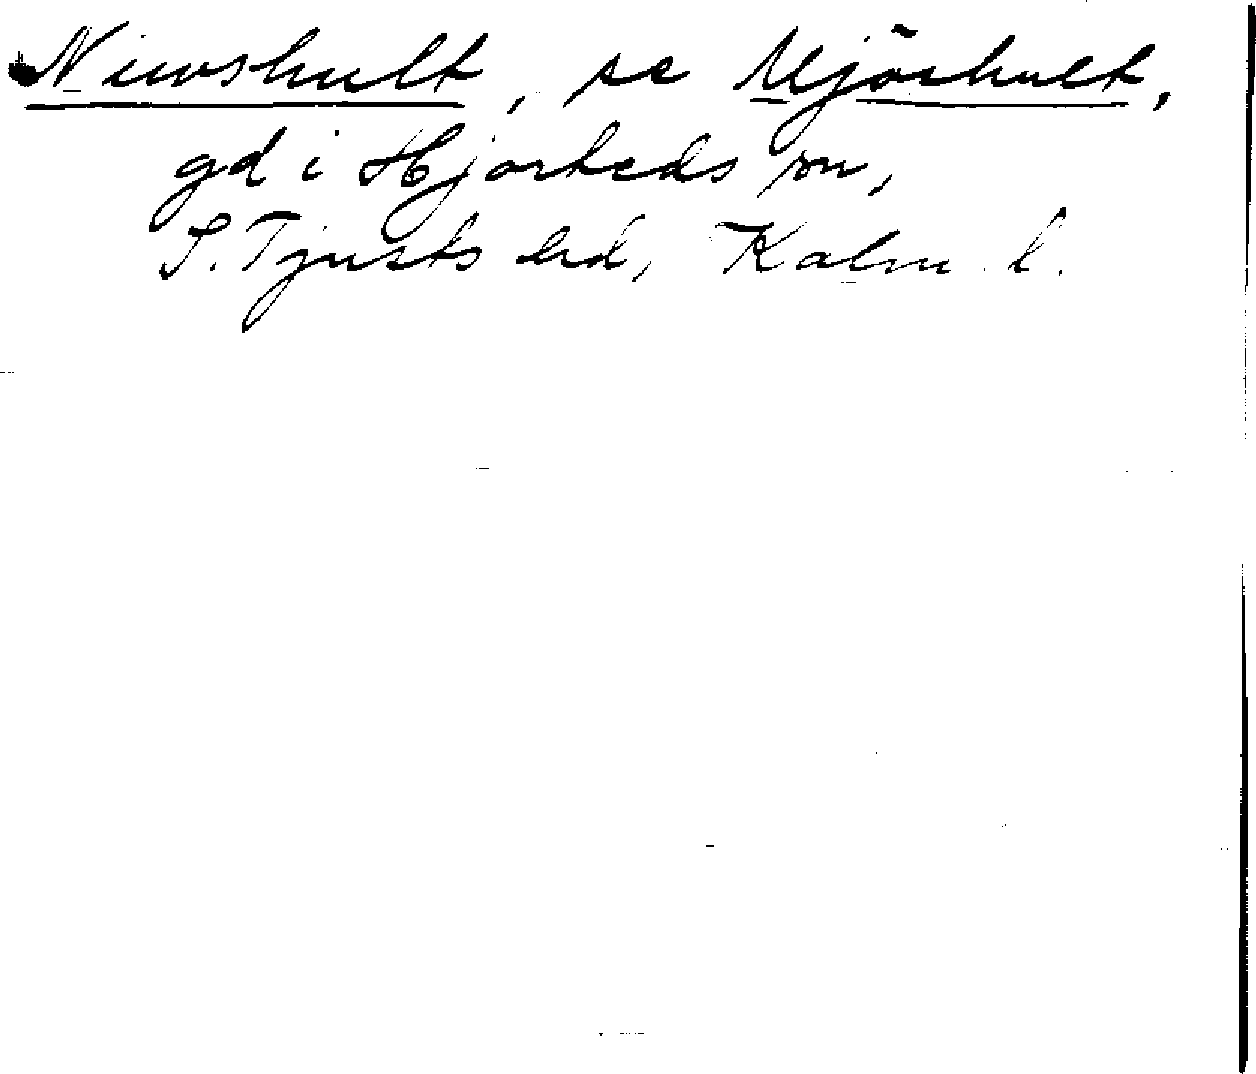 Niwshult, se Mjöshult,
gd i Hjorteds sn,
S. Tjusts hd, Kalm. l.